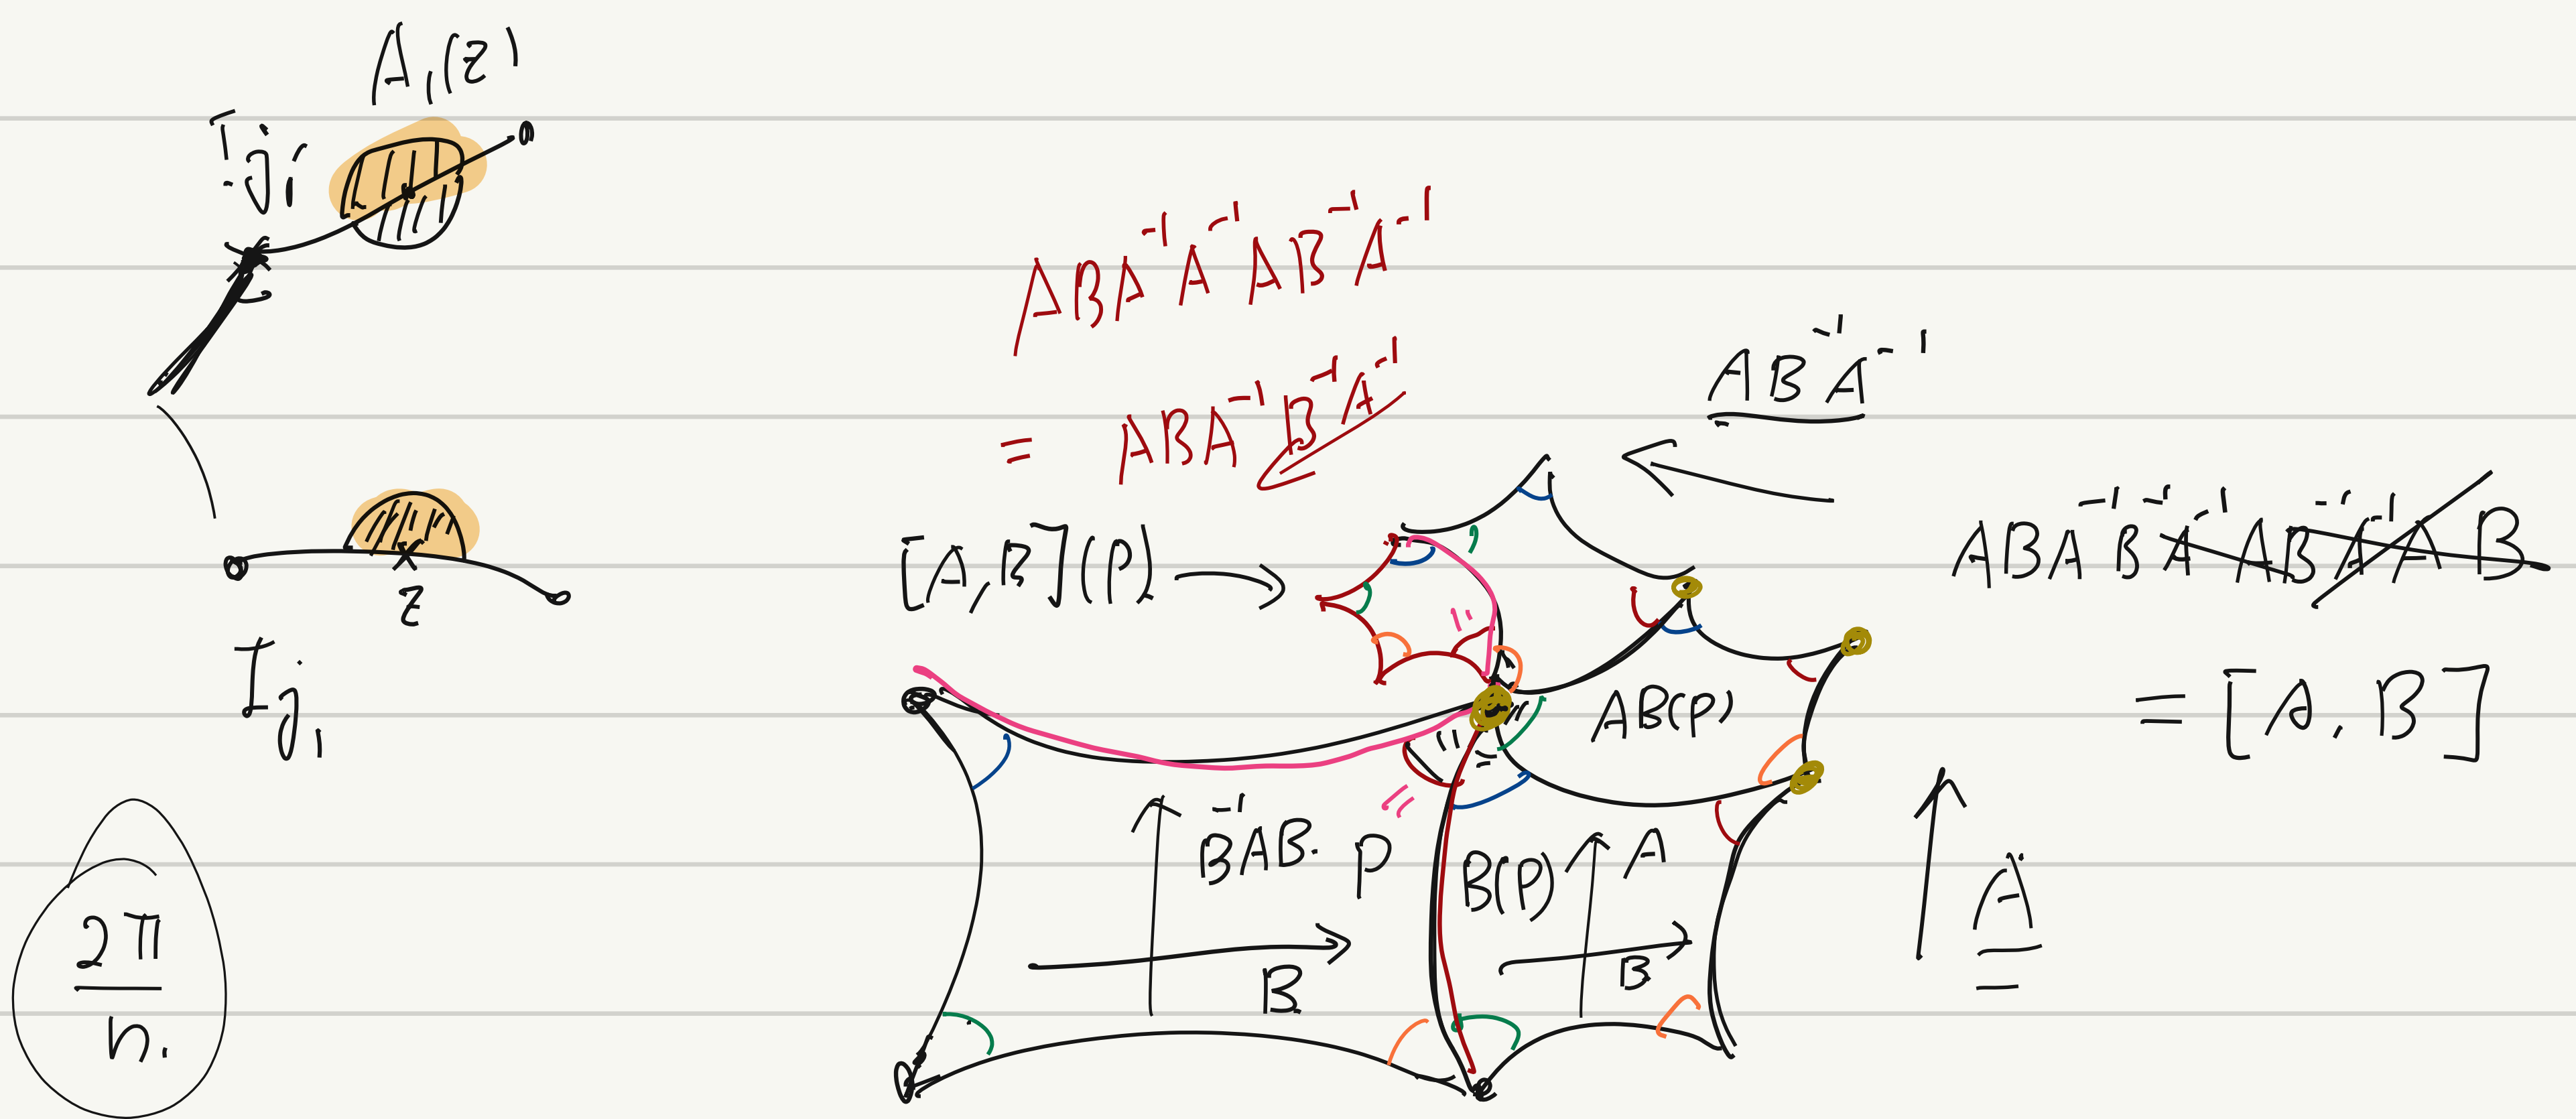 A₁(z)
I_{j₁'}
z
I_{j₁}
2π/n.
ABA⁻¹A⁻¹AB⁻¹A⁻¹
= ABA⁻¹B⁻¹A⁻¹
AB⁻¹A⁻¹
[A,B](P) →
ABA⁻¹B⁻¹A⁻¹AB⁻¹A⁻¹AB
= [A,B]
AB(P)
B⁻¹AB.
P
B(P)
A
B
B
A